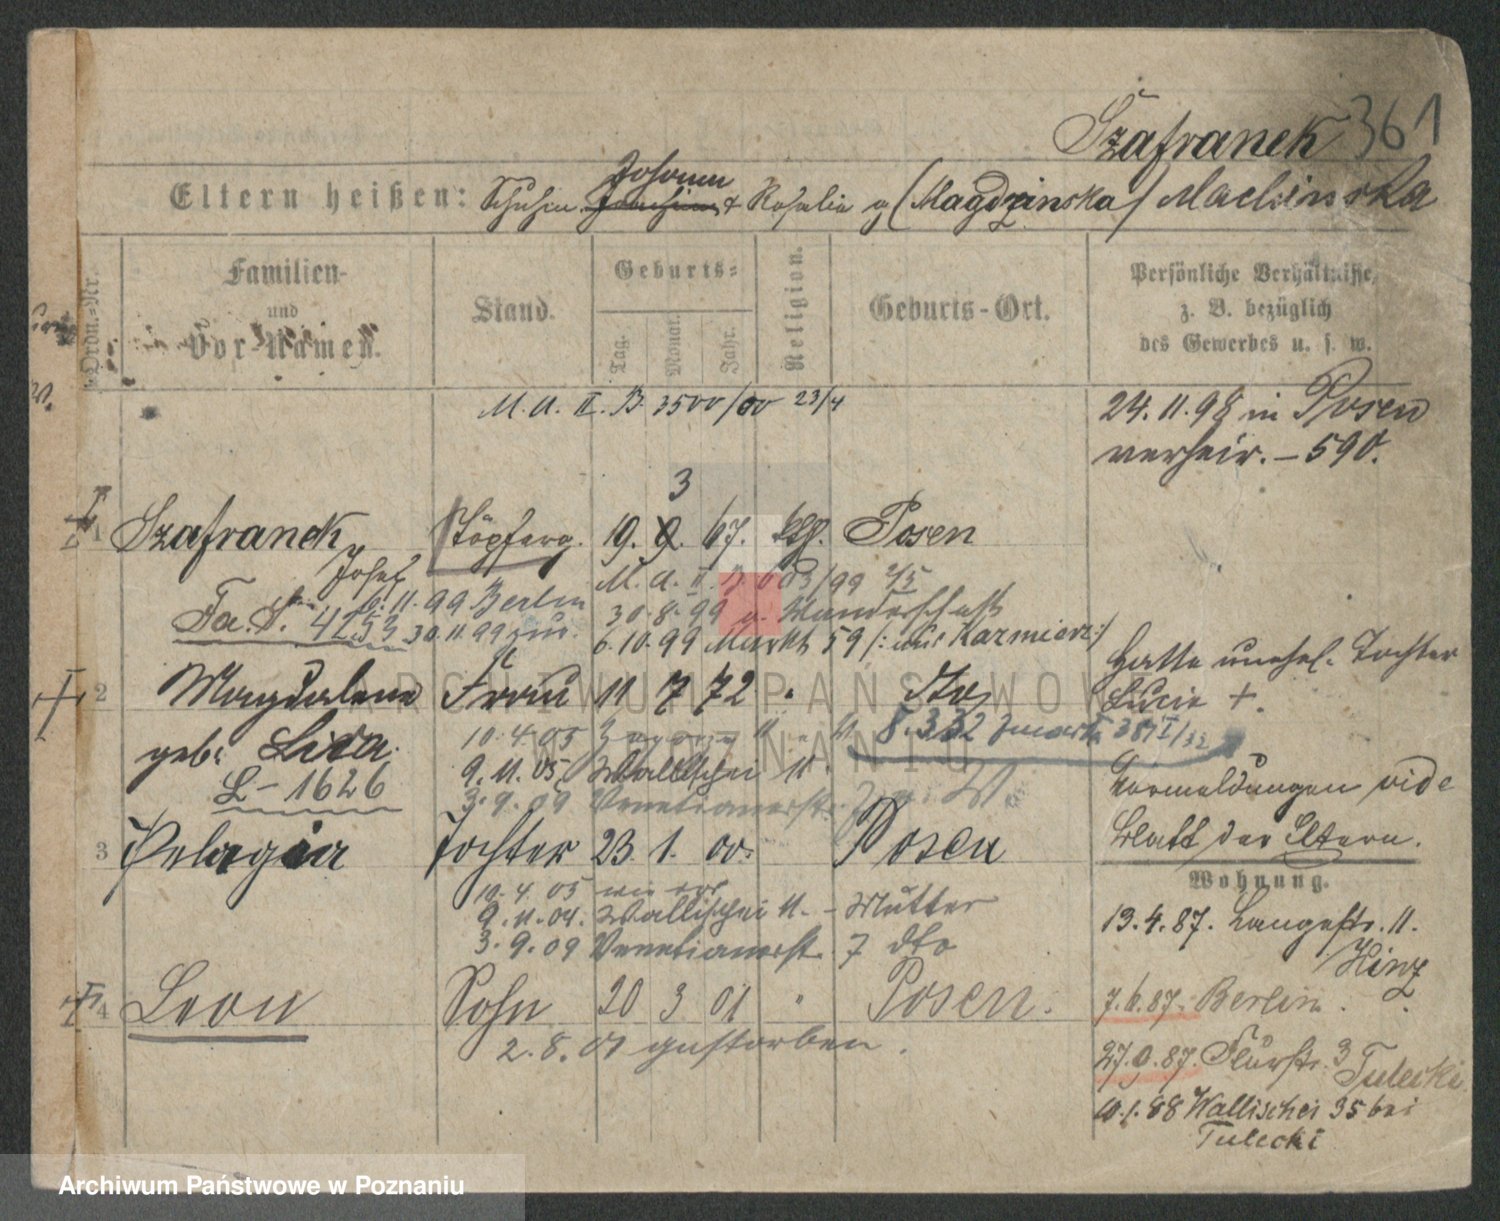 Szafranek 361
Johann
Eltern heißen: Schuhm. Rosalie g. (Magdzinska) Machinska
Ordn.=Nr.
Familien-
und
Vor-Namen.
Stand.
Geburts=
Tag.
Monat.
Jahr.
Religion.
Geburts-Ort.
Persönliche Verhältnisse,
z. B. bezüglich
des Gewerbes u. s. w.
M. A. II. B. 3500/00 23/4
24.11.98 in Posen
verheir. – 590.
3
1 Szafranek Töpferg. 19. 9. 67. kth. Posen
Josef
M. A. II. B. 603/99 2/5
6.11.99 Berlin
30.8.99 a. Wanderschaft
Fa. A. 4253 30.11.99 zur.
6.10.99 Markt 59 /: bei Kazmierz:/
2 Magdalene Frau 11 7 72 " dto
geb. Lisa.
L – 1626
Hatte unehel. Tochter
Lucie +.
10.4.05
9.11.05 Wallischei 11
3.9.09 Venetianerstr.
Vormeldungen vide
Blatt der Eltern.
3 Pelagia Tochter 23. 1. 00. Posen
10.4.05 wie vor
9.11.04. Wallischei 11. – Mutter
3.9.09 Venetianerstr. 7 dto
Wohnung.
13.4.87. Langestr. 11.
Hinz
7.6.87. Berlin.
4 Leon Sohn 20 3 01 " Posen.
2.8.01 gestorben.
27.9.87. Flurstr. 3
Tulecki
10.1.88 Wallischei 35 bei
Tulecki
ARCHIWUM PAŃSTWOWE
W POZNANIU
Archiwum Państwowe w Poznaniu